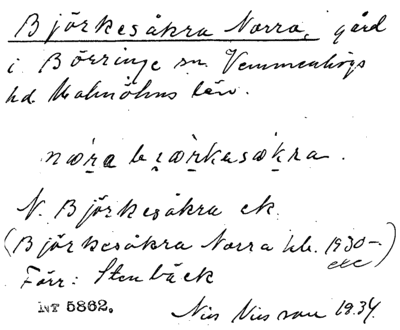 Björkesåkra Norra, gård
i Börringe sn. Vemmenhögs
hd. Malmöhus län.
næ̣ra bi̯æ̣rkasäkra.
N. Björkesåkra ek.
(Björkesåkra Norra hb. 1930– etc)
Förr: Stenbäck
Nr 5862.
Nils Nilsson 1934.